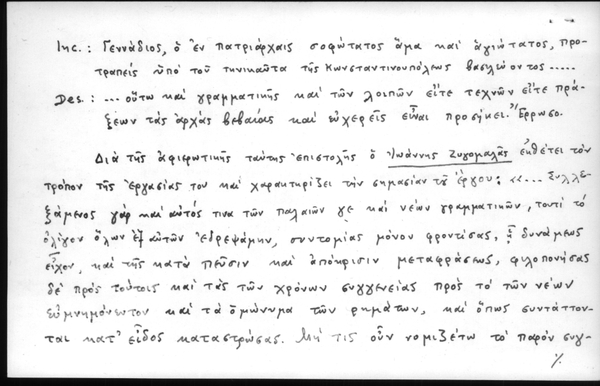 Inc.: Γεννάδιος, ὁ ἐν πατριάρχαις σοφώτατος ἅμα καὶ ἁγιώτατος, προ-
τραπεὶς ὑπὸ τοῦ τηνικαῦτα τῆς Κωνσταντινουπόλεως βασιλεύοντος .....
Des.: ... οὕτω καὶ γραμματικῆς καὶ τῶν λοιπῶν εἴτε τεχνῶν εἴτε πρά-
ξεων τὰς ἀρχὰς βεβαίας καὶ εὐχερεῖς εἶναι προσήκει. Ἔρρωσο.
Διὰ τῆς ἀφιερωτικῆς ταύτης ἐπιστολῆς ὁ Ἰωάννης Ζυγομαλᾶς ἐκθέτει τὸν
τρόπον τῆς ἐργασίας του καὶ χαρακτηρίζει τὴν σημασίαν τοῦ ἔργου: «... Συλλε-
ξάμενος γὰρ καὶ αὐτός τινα τῶν παλαιῶν γε καὶ νέων γραμματικῶν, τουτὶ τὸ
ὀλίγον ὅλων ἐξ αὐτῶν ἐδρεψάμην, συντομίας μόνον φροντίσας, ᾗ δυνάμεως
εἶχον, καὶ τῆς κατὰ πεῦσιν καὶ ἀπόκρισιν μεταφράσεως, φιλοπονήσας
δὲ πρὸς τούτοις καὶ τὰς τῶν χρόνων συγγενείας πρὸς τὸ τῶν νέων
εὐμνημόνευτον καὶ τὰ ὁμώνυμα τῶν ρημάτων, καὶ ὅπως συντάττον-
ται κατ' εἶδος καταστρώσας. Μή τις οὖν νομιζέτω τὸ παρὸν συγ-
./.